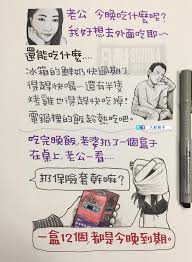 老公 今晚吃什麼呢?
我好想去外面吃耶~
還能吃什麼....
冰箱的鮮奶快過期了
得趕快喝~還有半隻
烤雞也得趕快吃掉!
電鍋裡的飯趁熱吃吧。
吃完晚飯,老婆扔了一個盒子
在桌上,老公一看....
扔保險套幹嘛?
一盒12個 都是今晚到期。